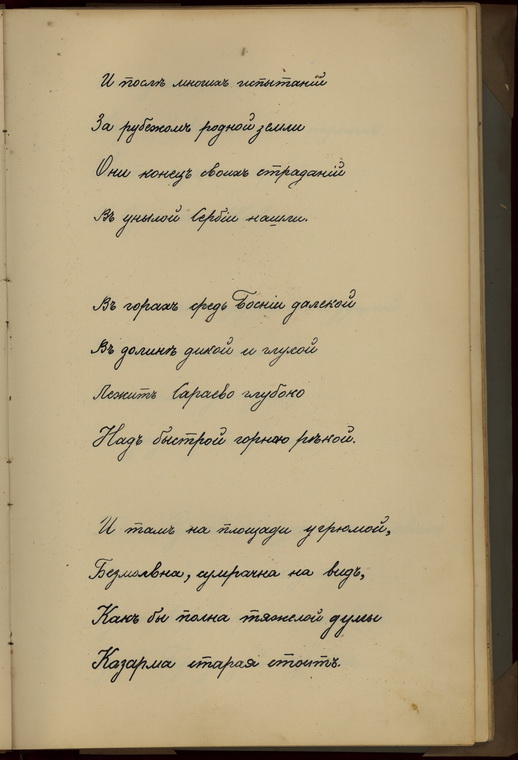 И послѣ многихъ испытаній
За рубежомъ родной земли
Они конецъ своихъ страданій
Въ унылой Сербіи нашли.
Въ горахъ средь Босніи далекой
Въ долинѣ дикой и глухой
Лежитъ Сараево глубоко
Надъ быстрой горною рѣкой.
И тамъ на площади угрюмой,
Безмолвна, сумрачна на видъ,
Какъ бы полна тяжелой думы
Казарма старая стоитъ.